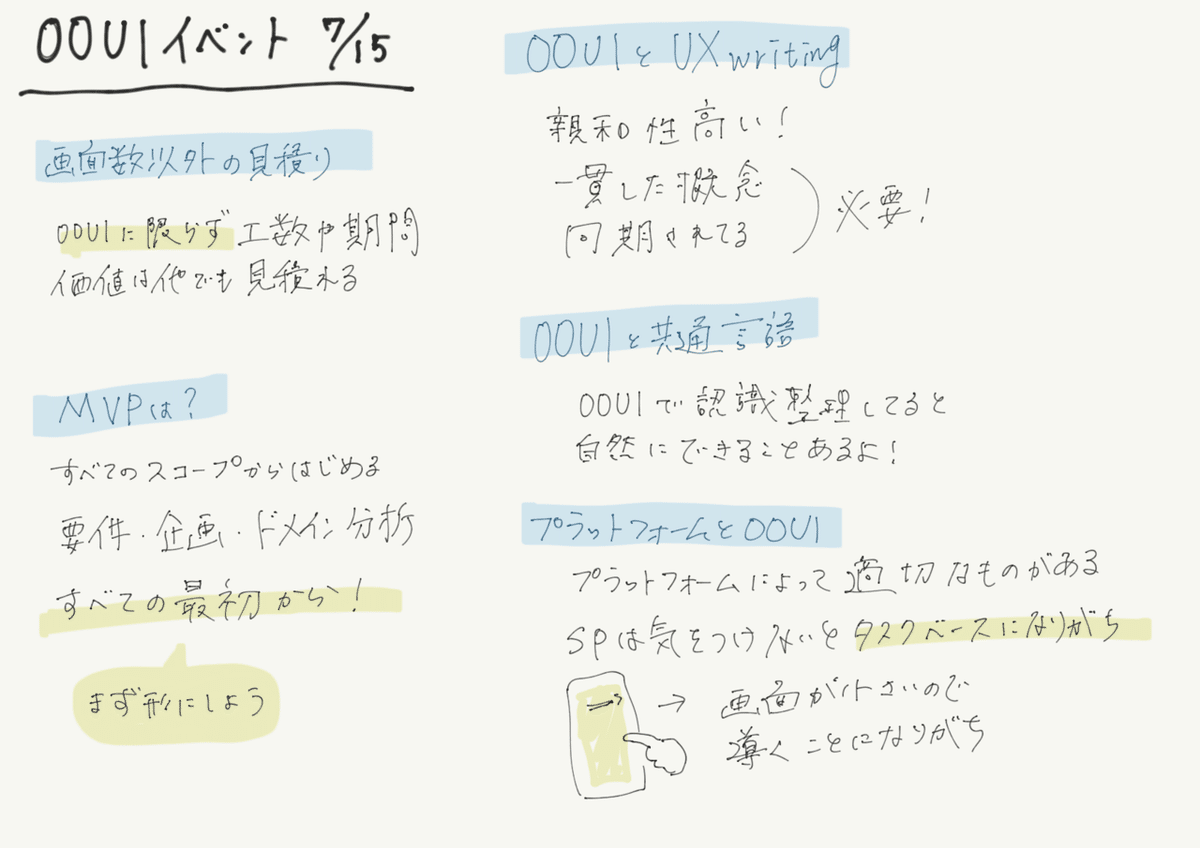 OOUIイベント 7/15
画面数以外の見積り
OOUIに限らず工数や期間
価値は他でも見積れる
MVPは?
すべてのスコープからはじめる
要件・企画・ドメイン分析
すべての最初から!
まず形にしよう
OOUIとUX writing
親和性高い!
一貫した概念
同期されてる
必要!
OOUIと共通言語
OOUIで認識整理してると
自然にできることあるよ!
プラットフォームとOOUI
プラットフォームによって適切なものがある
SPは気をつけないとタスクベースになりがち
→ 画面が小さいので
導くことになりがち